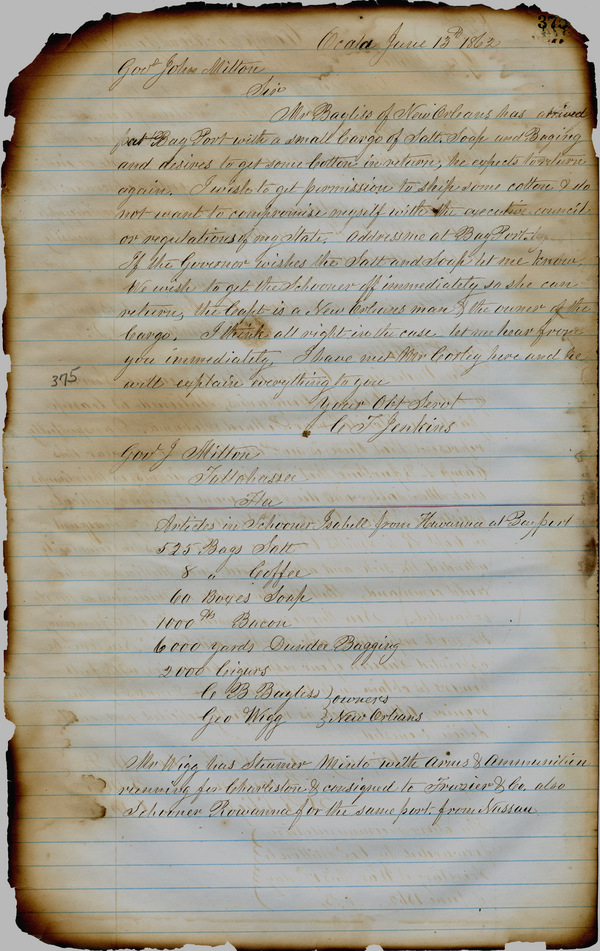 374
Ocala June 13th 1862
Govr John Milton
Sir
Mr Bayliss of New Orleans has arrived
at Bay Port with a small Cargo of Salt, Soap and Baging
and desires to get some Cotton in return, he expects to return
again. I wish to get permission to ship some cotton & do
not want to compromise myself with the executive council
or regulations of my State. Address me at Bay Port.
If the Governor wishes the Salt and Soap let me know
We wish to get the Schooner off immediately so she can
return, the Capt is a New Orleans man & the owner of the
Cargo. I think all right in the case let me hear from
you immediately, I have met Mr Corley here and he
will explain everything to you
375
Your Obt Servt
C F Jenkins
Govr J Milton
Tallahassee
Fla
Articles in Schooner Isabell from Havanna at Bayport
525 Bags Salt
8 " Coffee
60 Boxes Soap
1000 lbs Bacon
6000 yards Dundee Bagging
2000 Cigars
C B Bayliss } owners
Geo Wigg } New Orleans
Mr Wigg has Steamer Minto with Arms & Ammunition
running for Charleston & consigned to Frazier & Co. also
Schooner Rowanna for the same port from Nassau